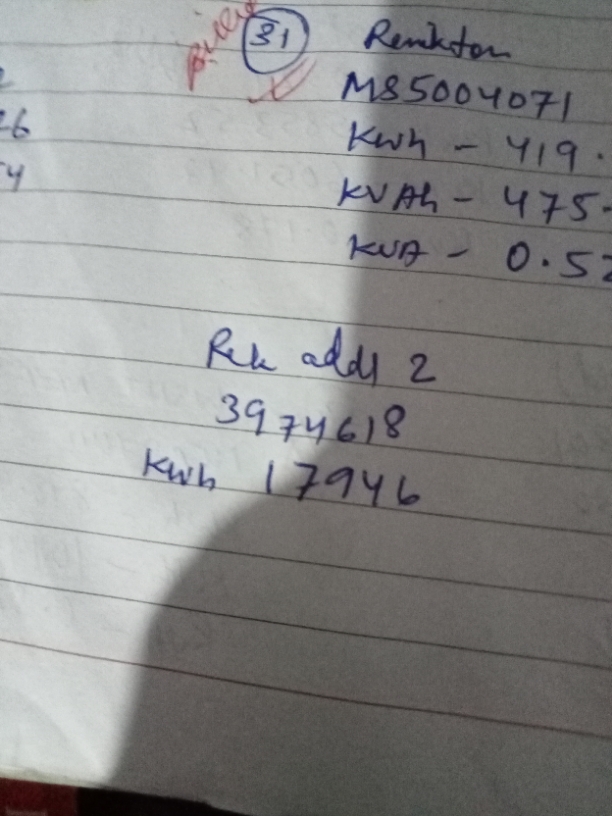 31
Remikton
M85004071
Kwh - 419.
KVAh - 475.
KVA - 0.52
26
addl 2
3974618
Kwh 17946